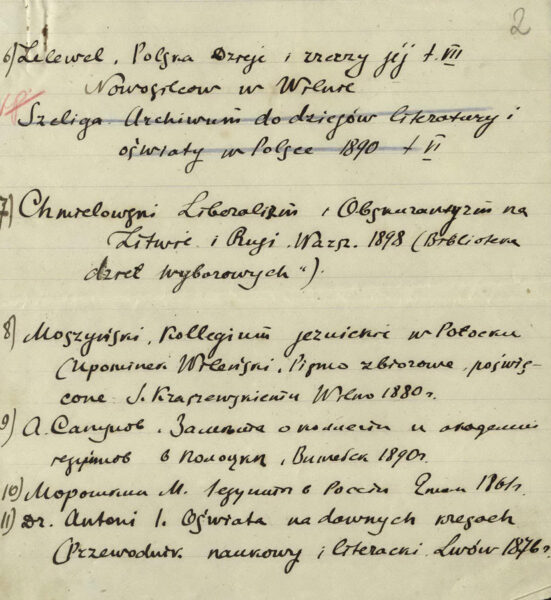 2
6) Lelewel. Polska Dzieje i rzeczy jéj t. VII
Nowosilcow w Wilnie
Szeliga. Archiwum do dziejów literatury i
oświaty w Polsce 1890 t VI
7) Chmielowski Liberalizm i Obskurantyzm na
Litwie i Rusi. Warsz. 1898 (Biblioteka
dzieł wyborowych").
8) Moszyński. Kollegium jezuickie w Połocku
(Upominek Wileński. Pismo zbiorowe, poświę-
cone J. Kraszewskiemu Wilno 1880r.
9) А. Сапунов. Заметка о коллегии и академии
езуитов в Полоцке, Витебск 1890г.
10) Морошкин М. Іезуиты в России 186
11) Dr. Antoni I. Oświata na dawnych kresach
(Przewodnik naukowy i literacki Lwów 1876 r